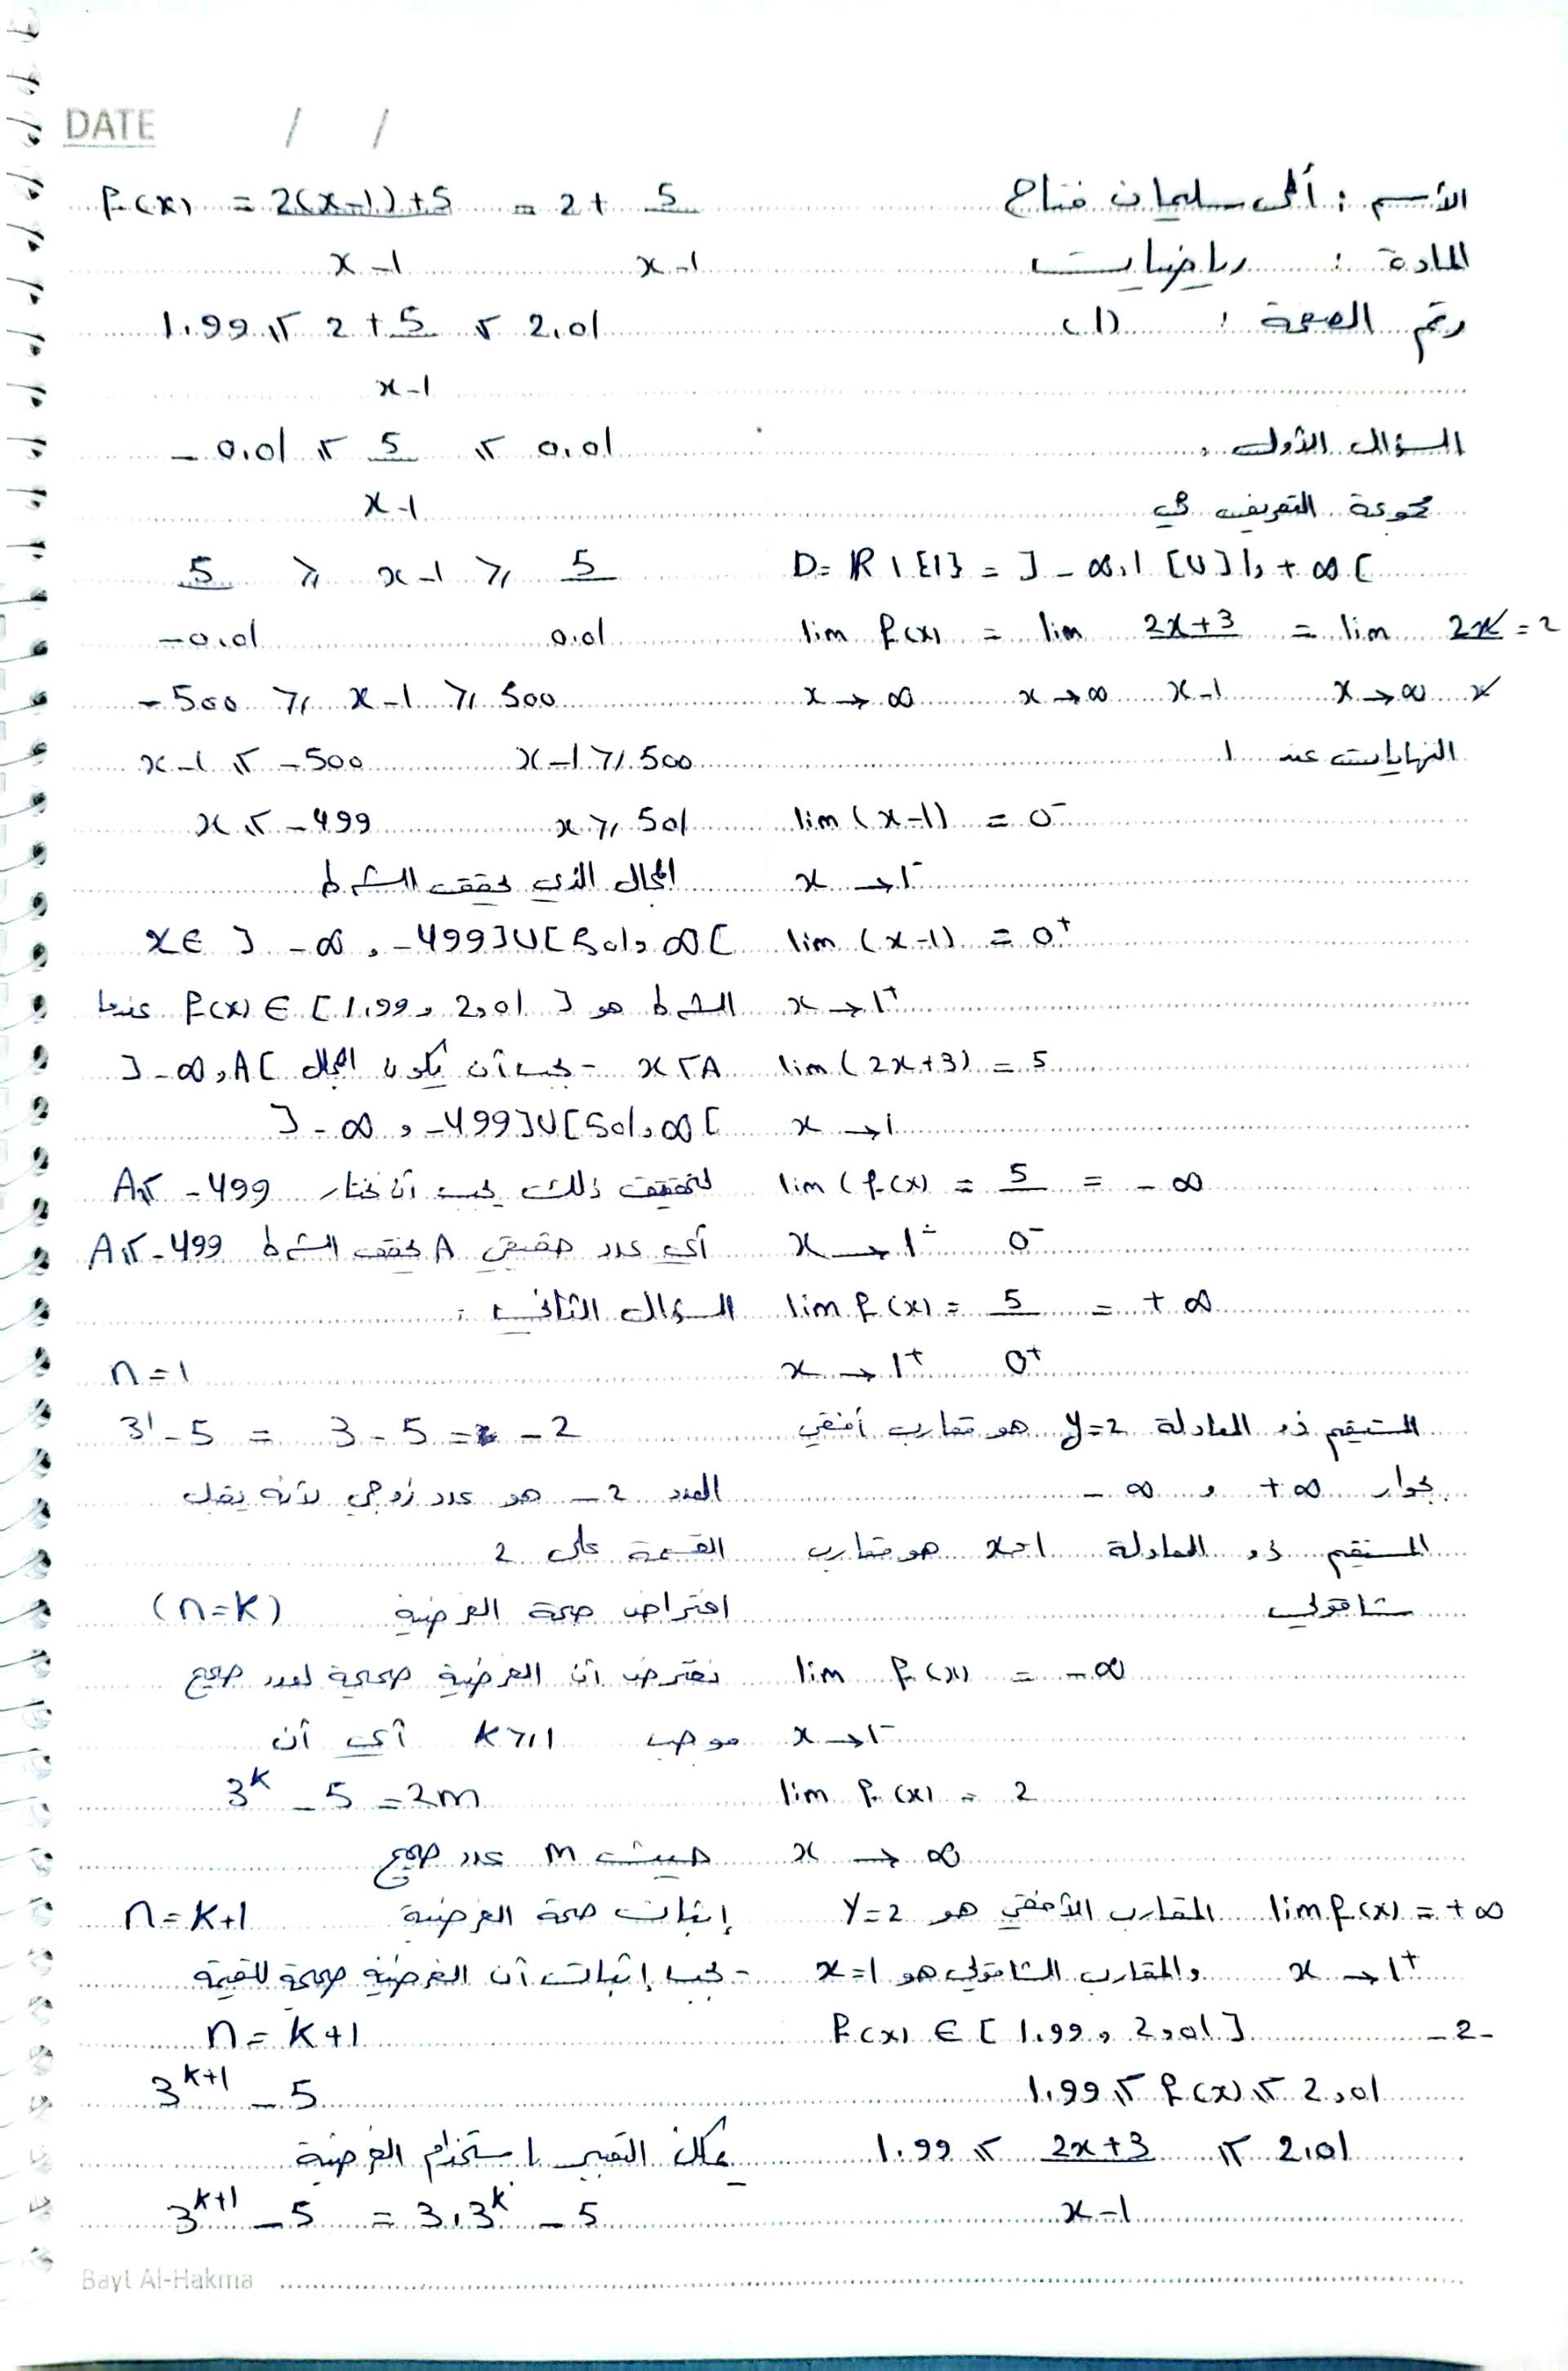 DATE / /
الأسم : سليمان فتاح
المادة : رياضيات
رقم الصفحة : (1)
السؤال الأول :
مجموعة التعريف هي
D = R \ {1} = ]-∞,1 [U]1, +∞ [
lim f(x) = lim 2x+3 = lim 2x = 2
x → ∞ x → ∞ x-1 x → ∞ x
النهايات عند 1
lim (x-1) = 0⁻
x → 1⁻
lim (x-1) = 0⁺
x → 1⁺
lim (2x+3) = 5
x → 1
lim (f(x) = 5 = -∞
x → 1⁻ 0⁻
lim f(x) = 5 = +∞
x → 1⁺ 0⁺
المستقيم ذو المعادلة y=2 هو مقارب أفقي
بجوار +∞ و -∞
المستقيم ذو المعادلة x=1 هو مقارب
شاقولي
lim f(x) = -∞
x → 1⁻
lim f(x) = 2
x → ∞
lim f(x) = +∞ المقارب الأفقي هو y=2
x → 1⁺ والمقارب الشاقولي هو x=1
-2- f(x) ∈ [1.99, 2,01]
1.99 ≤ f(x) ≤ 2,01
1.99 ≤ 2x+3 ≤ 2.01
x-1
f(x) = 2(x-1)+5 = 2 + 5
x-1 x-1
1.99 ≤ 2 + 5 ≤ 2.01
x-1
-0.01 ≤ 5 ≤ 0.01
x-1
5 ≥ x-1 ≥ 5
-0.01 0.01
-500 ≥ x-1 ≥ 500
x-1 ≤ -500 x-1 ≥ 500
x ≤ -499 x ≥ 501
المجال الذي يحقق الشرط
x ∈ ]-∞, -499]U[501, ∞[
الشرط هو f(x) ∈ [1.99, 2,01] عندما
x < A - يجب أن يكون المجال ]-∞, A[
]-∞, -499]U[501, ∞[
لتحقيق ذلك يجب أن نختار A ≤ -499
أي عدد حقيقي A يحقق الشرط A ≤ -499
السؤال الثاني :
n = 1
3¹ - 5 = 3 - 5 = -2
العدد -2 هو عدد زوجي لأنه يقبل
القسمة على 2
افتراض صحة الفرضية (n=k)
نفترض أن الفرضية صحيحة لعدد صحيح
موجب k ≥ 1 أي أن
3ᵏ - 5 = 2m
حيث m عدد صحيح
إثبات صحة الفرضية n = k+1
- يجب إثبات أن الفرضية صحيحة للقيمة
n = k+1
3ᵏ⁺¹ - 5
يمكن التعبير باستخدام الفرضية
3ᵏ⁺¹ - 5 = 3.3ᵏ - 5
Bayt Al-Hakma